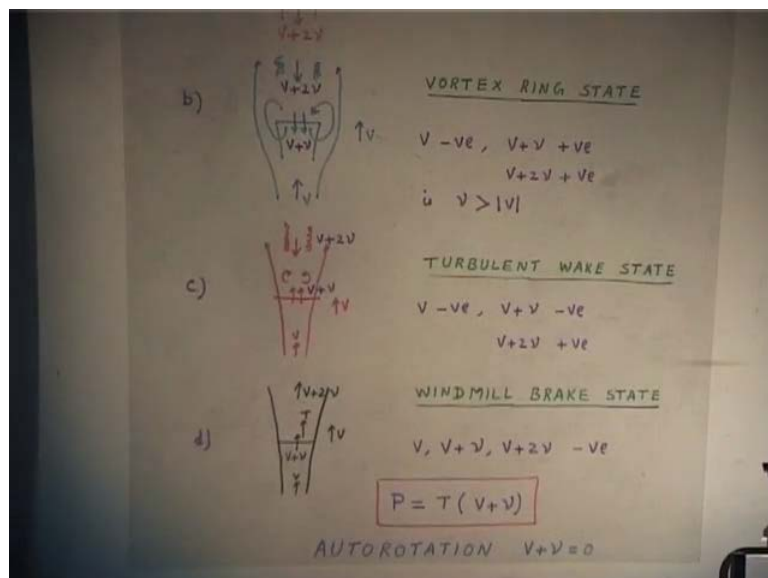 V+2ν
b)
V+2ν
V+ν
↑V
↑V
VORTEX RING STATE
V -ve, V+ν +ve
V+2ν +ve
ν > |V|
c)
V+2ν
↑↑V+ν
↑V
V
TURBULENT WAKE STATE
V -ve, V+ν -ve
V+2ν +ve
d)
↑V+2ν
T
V+ν
↑V
V
WINDMILL BRAKE STATE
V, V+ν, V+2ν -ve
P = T(V+ν)
AUTOROTATION V+ν=0